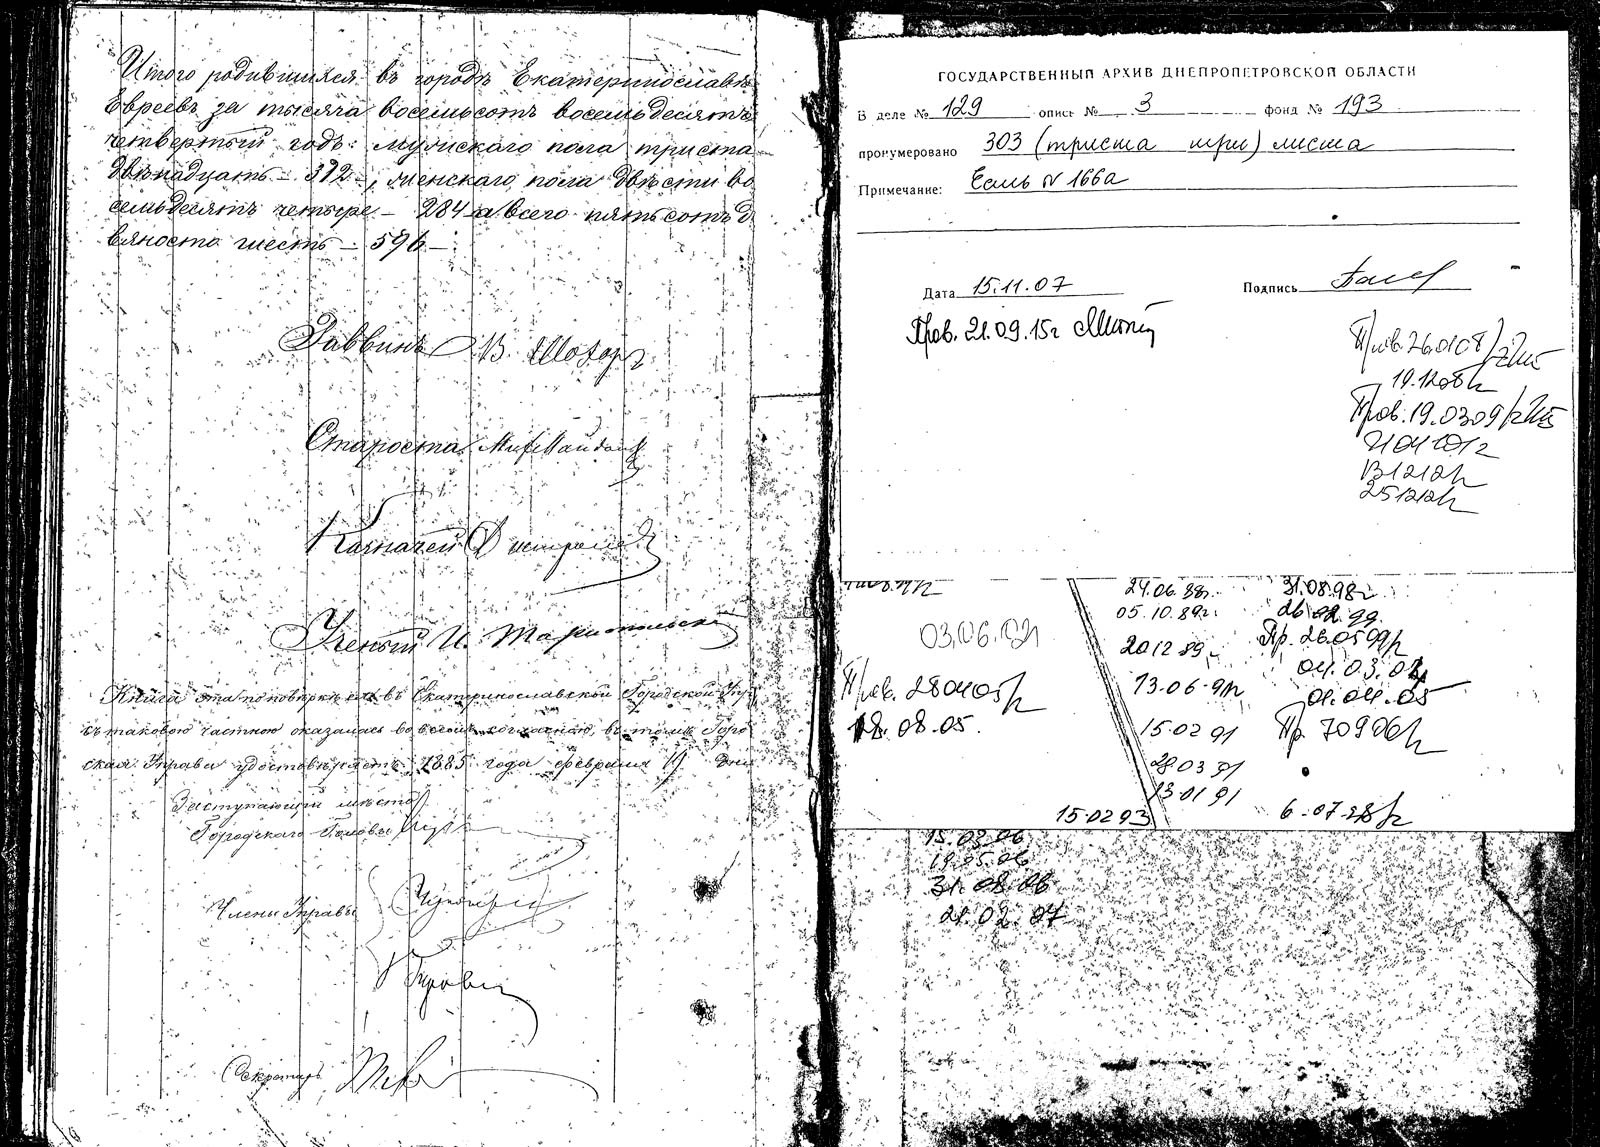 Итого родившихся въ городѣ Екатеринославѣ
Евреевъ за тысяча восемьсотъ восемьдесятъ
четвертый годъ: мужскаго пола триста
двѣнадцать – 312 –, женскаго пола двѣсти во
семьдесятъ четыре – 284 а всего пятьсотъ д
вяносто шесть – 596 –
Раввинъ В. Шохоръ
Староста
Казначей
Ученый И.
Книга эта по повѣркѣ ея въ Екатеринославской Городской Упр
съ таковою частною оказалась во всемъ согласною, въ томъ Горо
ская Управа удостовѣряетъ, 1885 года февраля 19 дня
Заступающій мѣсто
Городского Головы
Члены Управы
Секретарь
ГОСУДАРСТВЕННЫЙ АРХИВ ДНЕПРОПЕТРОВСКОЙ ОБЛАСТИ
В деле № 129 опись № 3 фонд № 193
пронумеровано 303 (триста три) листа
Примечание: Есть N 166а
Дата 15.11.07 Подпись
Пров. 21.09.15г
Пров. 26.01.08
19.12.08
Пров. 19.03.09
13.12.12
25.12.12
24.06.88г.
05.10.89г.
20.12.89
13.06.91
15.02.91
28.03.91
13.01.91
15.02.93
31.08.98г
26.02.99
Пр. 26.05.99
04.03.02
01.04.05
Пр. 7.09.06
6.07.98
Пров. 28.04.05
18.08.05.
15.03.06
19.05.06
31.08.06
21.02.07